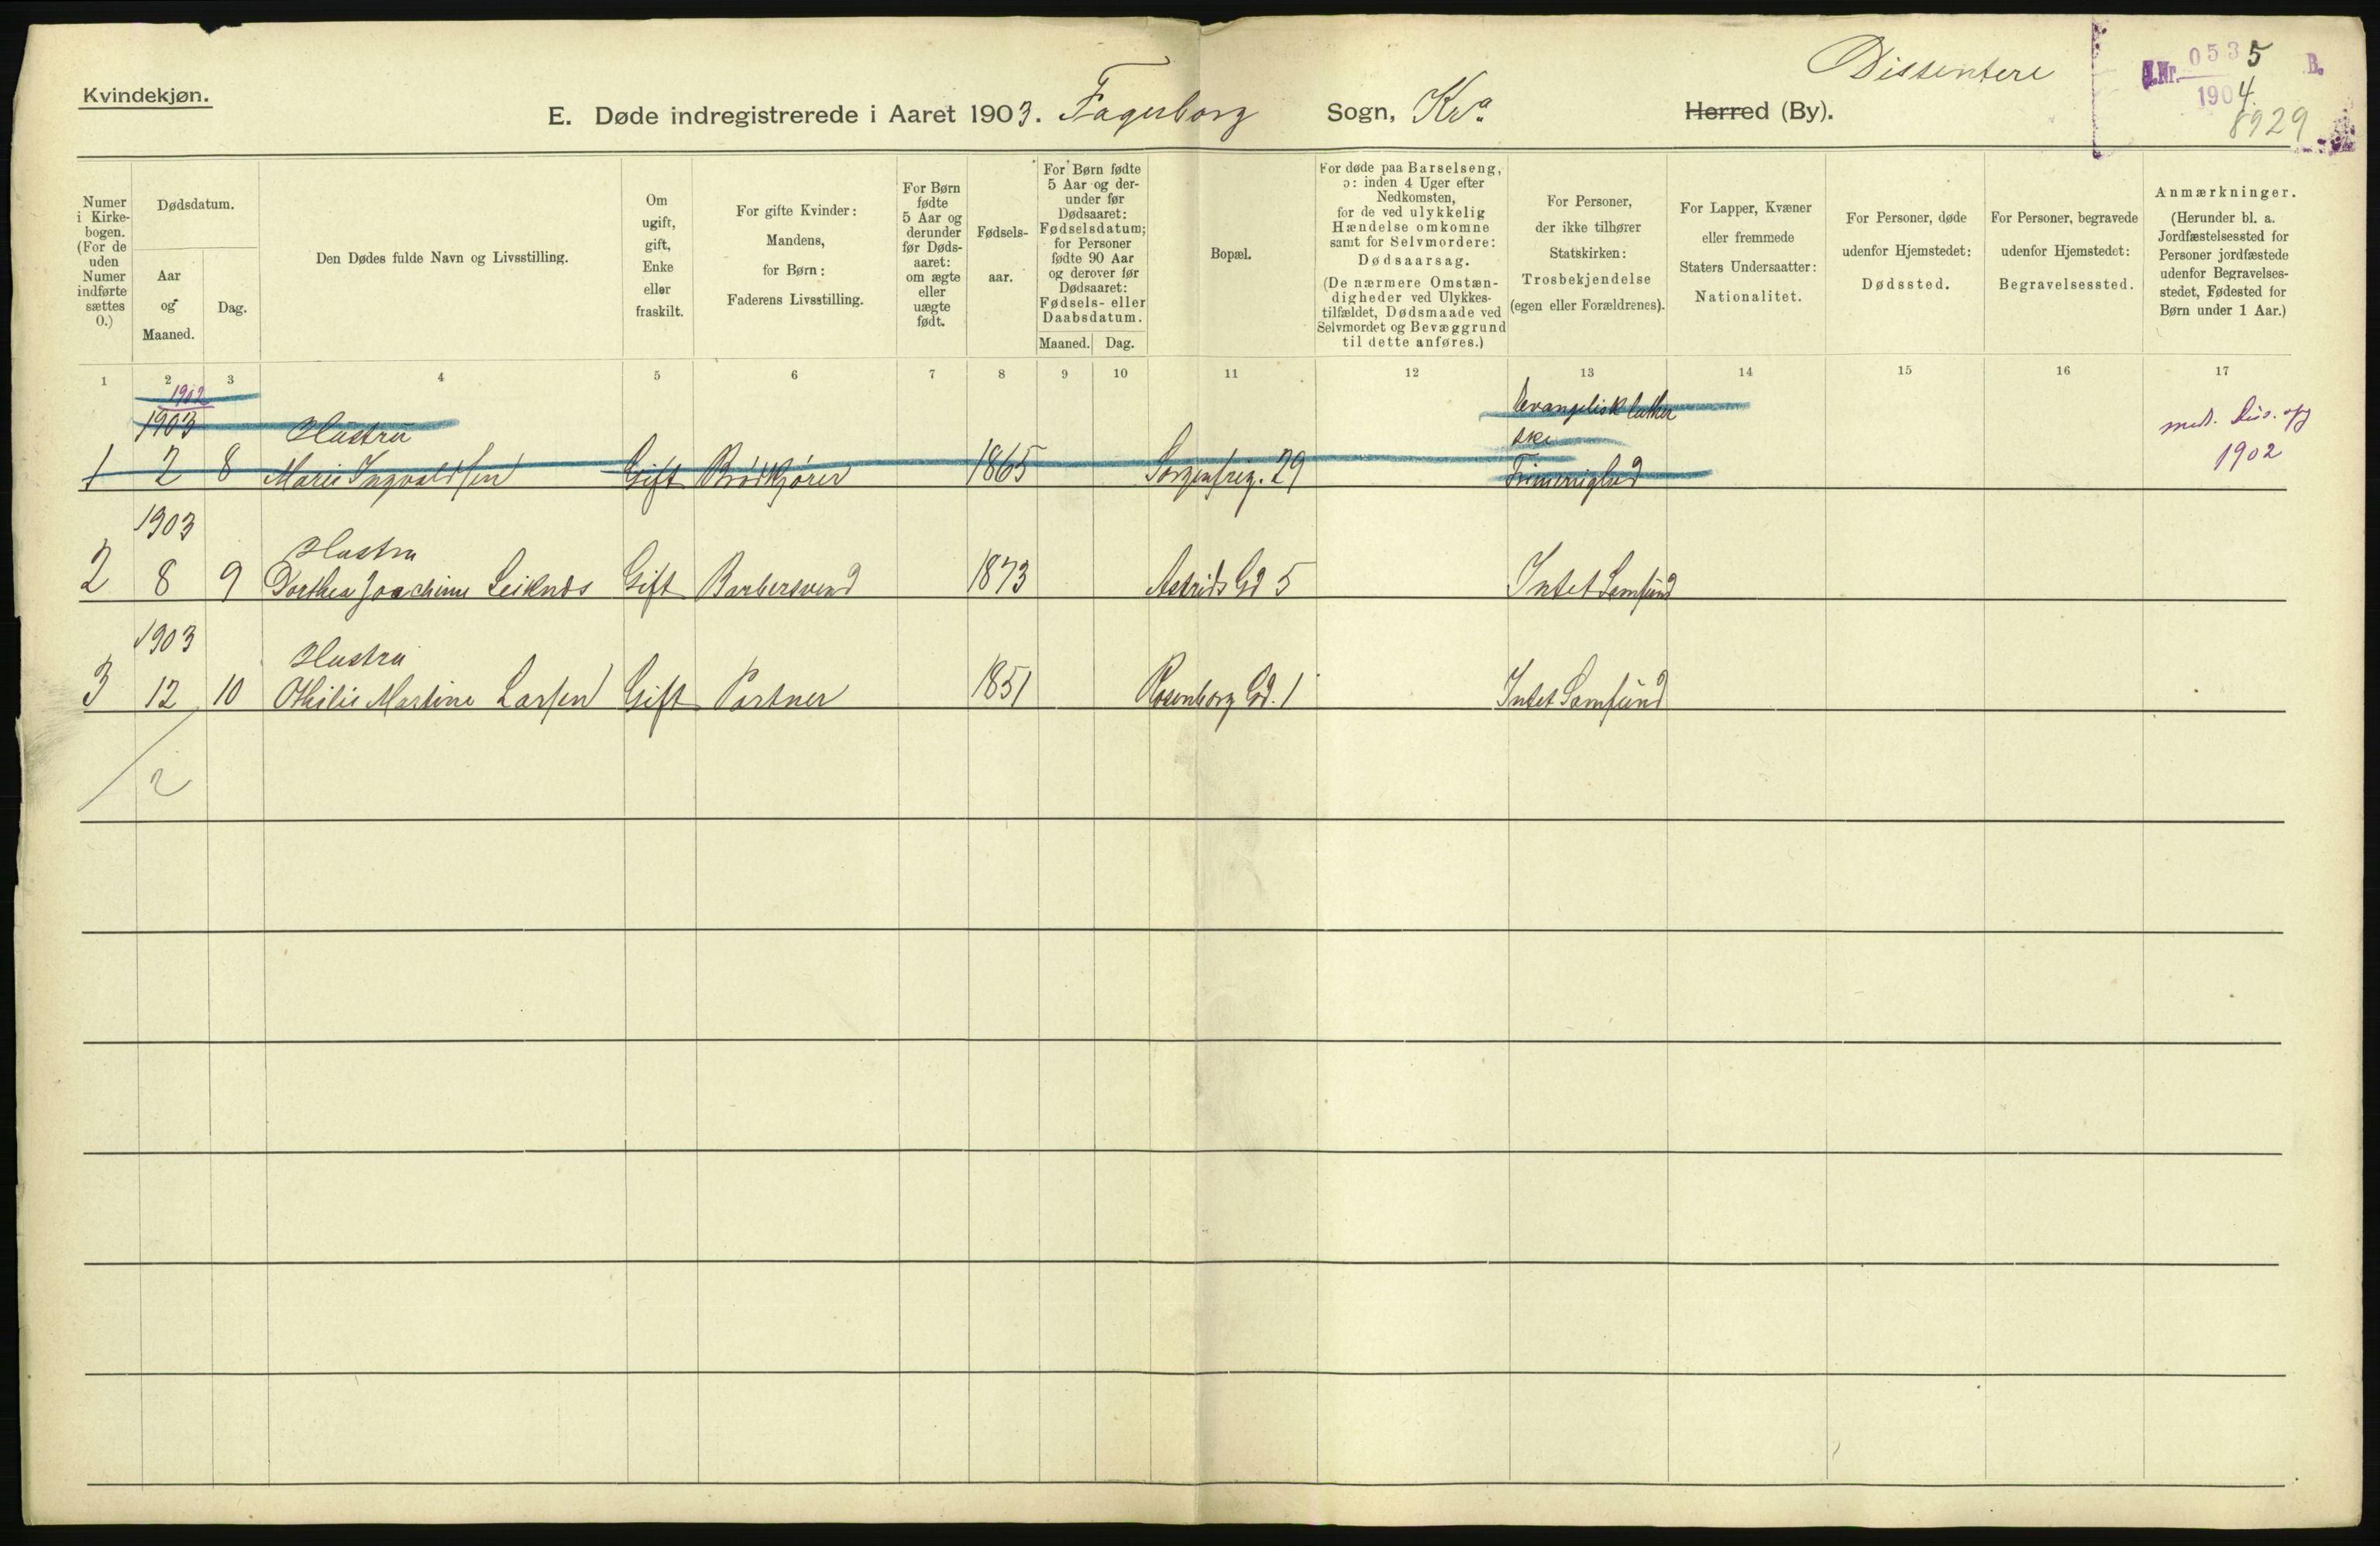 Kvindekjøn.
E. Døde indregistrerede i Aaret 1903. Fagerborg Sogn, Kra Herred (By).
Dissentere
J.Nr. 0535 B.
1904
8929
Numer i Kirkebogen. (For de uden Numer indførte sættes 0.)
Dødsdatum.
Aar og Maaned.
Dag.
Den Dødes fulde Navn og Livsstilling.
Om ugift, gift, Enke eller fraskilt.
For gifte Kvinder: Mandens, for Børn: Faderens Livsstilling.
For Børn fødte 5 Aar og derunder før Dødsaaret: om ægte eller uægte født.
Fødselsaar.
For Børn fødte 5 Aar og derunder før Dødsaaret: Fødselsdatum; for Personer fødte 90 Aar og derover før Dødsaaret: Fødsels- eller Daabsdatum.
Maaned. Dag.
Bopæl.
For døde paa Barselseng, ɔ: inden 4 Uger efter Nedkomsten, for de ved ulykkelig Hændelse omkomne samt for Selvmordere: Dødsaarsag.
(De nærmere Omstændigheder ved Ulykkestilfældet, Dødsmaade ved Selvmordet og Bevæggrund til dette anføres.)
For Personer, der ikke tilhører Statskirken: Trosbekjendelse (egen eller Forældrenes).
For Lapper, Kvæner eller fremmede Staters Undersaatter: Nationalitet.
For Personer, døde udenfor Hjemstedet: Dødssted.
For Personer, begravede udenfor Hjemstedet: Begravelsessted.
Anmærkninger.
(Herunder bl. a. Jordfæstelsessted for Personer jordfæstede udenfor Begravelsesstedet, Fødested for Børn under 1 Aar.)
1 2 3 4 5 6 7 8 9 10 11 12 13 14 15 16 17
1902
1903 Hustru Evangelisk luther
ske
1 2 8 Marie Ingvaldsen Gift Brødkjører 1865 Sorgenfrig. 29
1902
1903
Hustru
2 8 9 Dorthea Joachime Seiknds Gift Barbersvend 1873 Astrids Gd 5 Intet Samfund
1903
Hustru
3 12 10 Othilie Martine Larsen Gift Portner 1851 Rosenborg Gd. 1 Intet Samfund
2